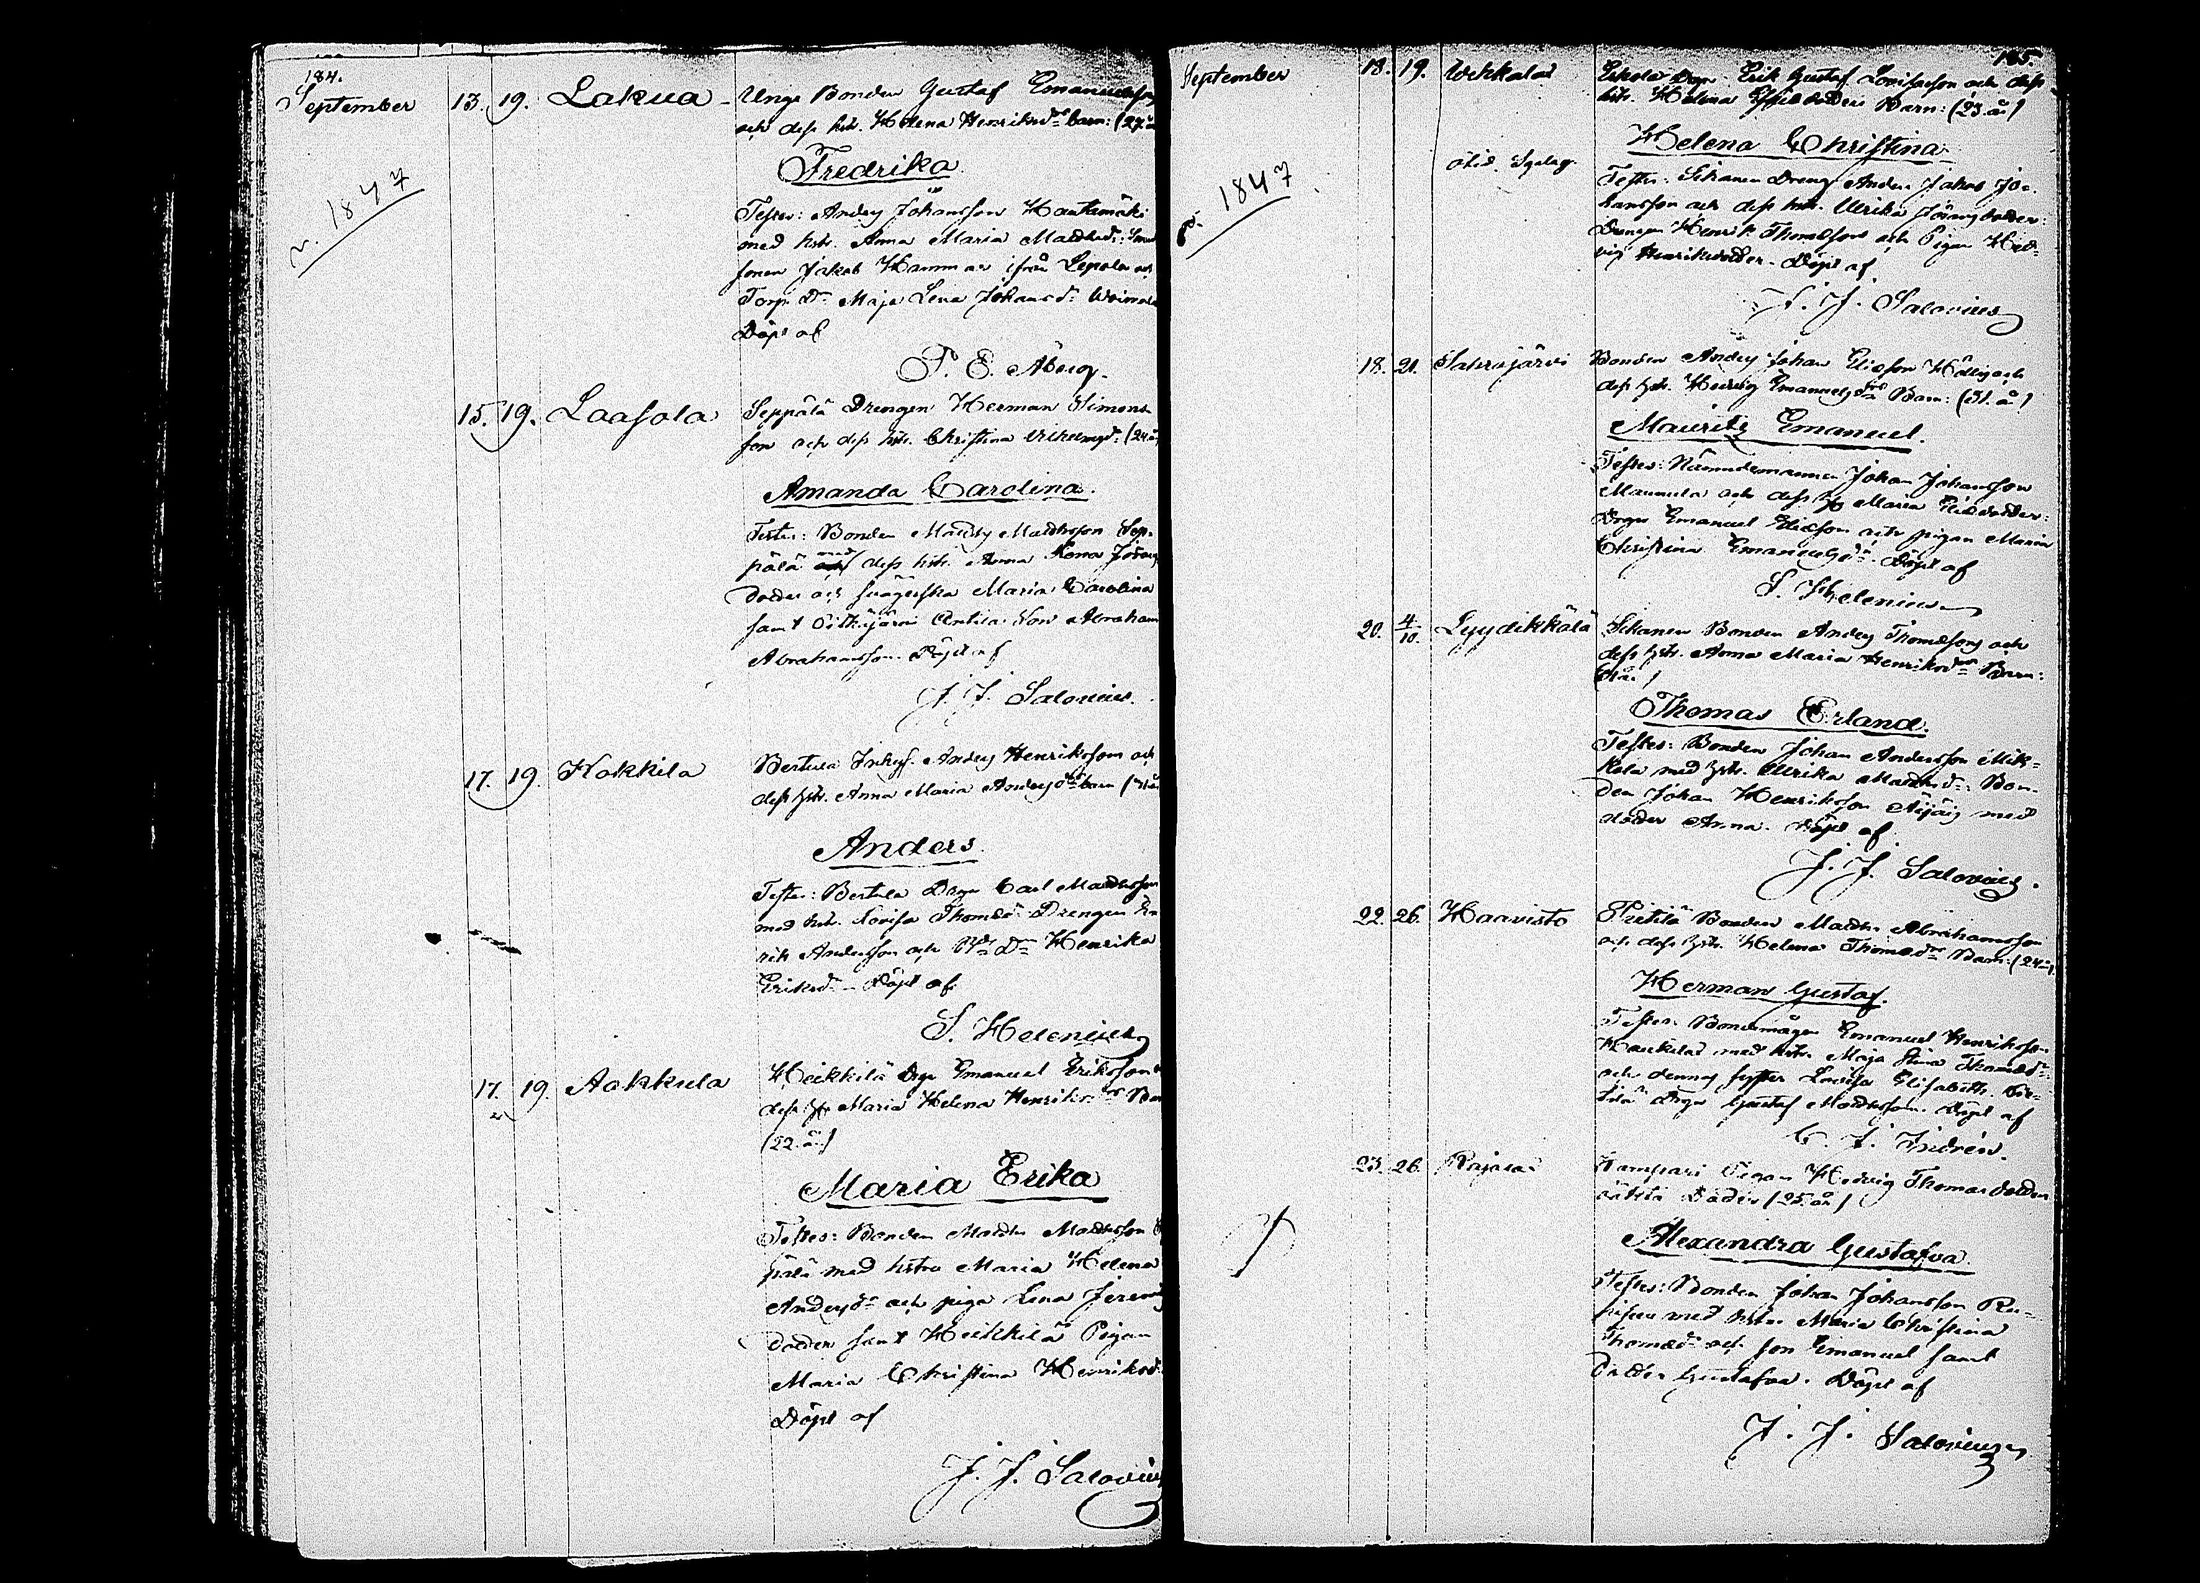 184.
September 13. 19. Lakua Unge Bonden Gustaf Emanuelsson
och dess hst. Helena Henriksd:r barn: (27 å
n. 1847
Fredrika
Testes: Anders Johansson Hautamäki
med hst. Anna Maria Mattsd:r
sonen Jakob Hammar ifrån Lepola och
Torp. D:r Maja Lena Johansd:r
Döpt af
P. E. Åberg.
15. 19. Laasola Seppälä Drengen Herman Simons
son och dess hst. Christina Wilhelmsd: (24 å
Amanda Carolina.
Testes: Bonden Matts Mattsson Sep-
pälä med dess hst. Anna Lena Jörans
dotter och svägerska Maria Carolina
samt Pitkäjärvi Anttila Son Abraham
Abrahamsson. Döpt af
J. J. Salovius.
17. 19. Kokkila Bertula Inhys. Anders Henriksson och
dess hst. Anna Maria Andersd:r barn
Anders.
Testes: Bertula Drgn Carl Mattsson
med hst. Lovisa Thomsd:r Drengen Hen
rik Andersson och Henrika
Eriksd:r Döpt af
S. Helenius
17. 19. Aakkula Heikkilä Drgn Emanuel Eriksson
dess hst Maria Helena Henriksd:r Barn
(22. å.)
Maria Erika
Testes: Bonden Matts Mattsson
pälä med hstru Maria Helena
Andersd:r och piga Lena Jerem
dotter samt Heikkilä Pigan
Maria Christina Henriksd:
Döpt af
J. J. Salovius
185.
September 18. 19. Uskela Drgn Erik Gustaf Lovisasson och dess
hst. Helena Barn: (23. å.)
1847
Helena Christina
Testes: Sikanen Dreng Anders Jakob Jo-
hansson och dess hst. Ulrika Jöransdotter:
Drengen Henrik Thomasson och Pigan Hed-
vig Henriksdotter. Döpt af
J. J. Salovius
18. 21. Sahrajärvi Bonden Anders Johan Eliasson Hällig och
dess hst. Hedvig Emanuelsd:r Barn: (31. å.)
Mauritz Emanuel.
Testes: Nämndemannen Johan Johansson
Maunula och dess hst Maria Eliædotter:
Drgn Emanuel Eliasson och pigan Maria
Christina Emanuelsd:r. Döpt af
S. Helenius
20. 4/10. Lyydikkälä Sikanen Bonden Anders Thomasson och
dess hst. Anna Maria Henriksd:r Barn:
Thomas Erland.
Testes: Bonden Johan Andersson Mik-
kola med hst. Ulrika Mattsd:r. Bon-
den Johan Henriksson Äijäis med
dotter Anna. Döpt af
J. J. Salovius.
22. 26. Haavisto Pietilä Bonden Matts Abrahamsson
och dess hst. Helena Thomasd:r Barn: (24 å)
Herman Gustaf.
Testes: Bondemågen Emanuel Henriksson
med hst. Maja Stina Thomasd:r
och dennes syster Lovisa Elisabeth. Pie-
tilä Drgn Gustaf Mattsson. Döpt af
C. J. Indrén.
23. 26. Rajala Kampari Pigan Hedvig Thomasdotter
oäkta Dotter (25. år)
Alexandra Gustafva.
Testes: Bonden Johan Johansson
med hstru Maria Christina
Thomasd:r och son Emanuel samt
Dotter Gustafva. Döpt af
J. J. Salovius